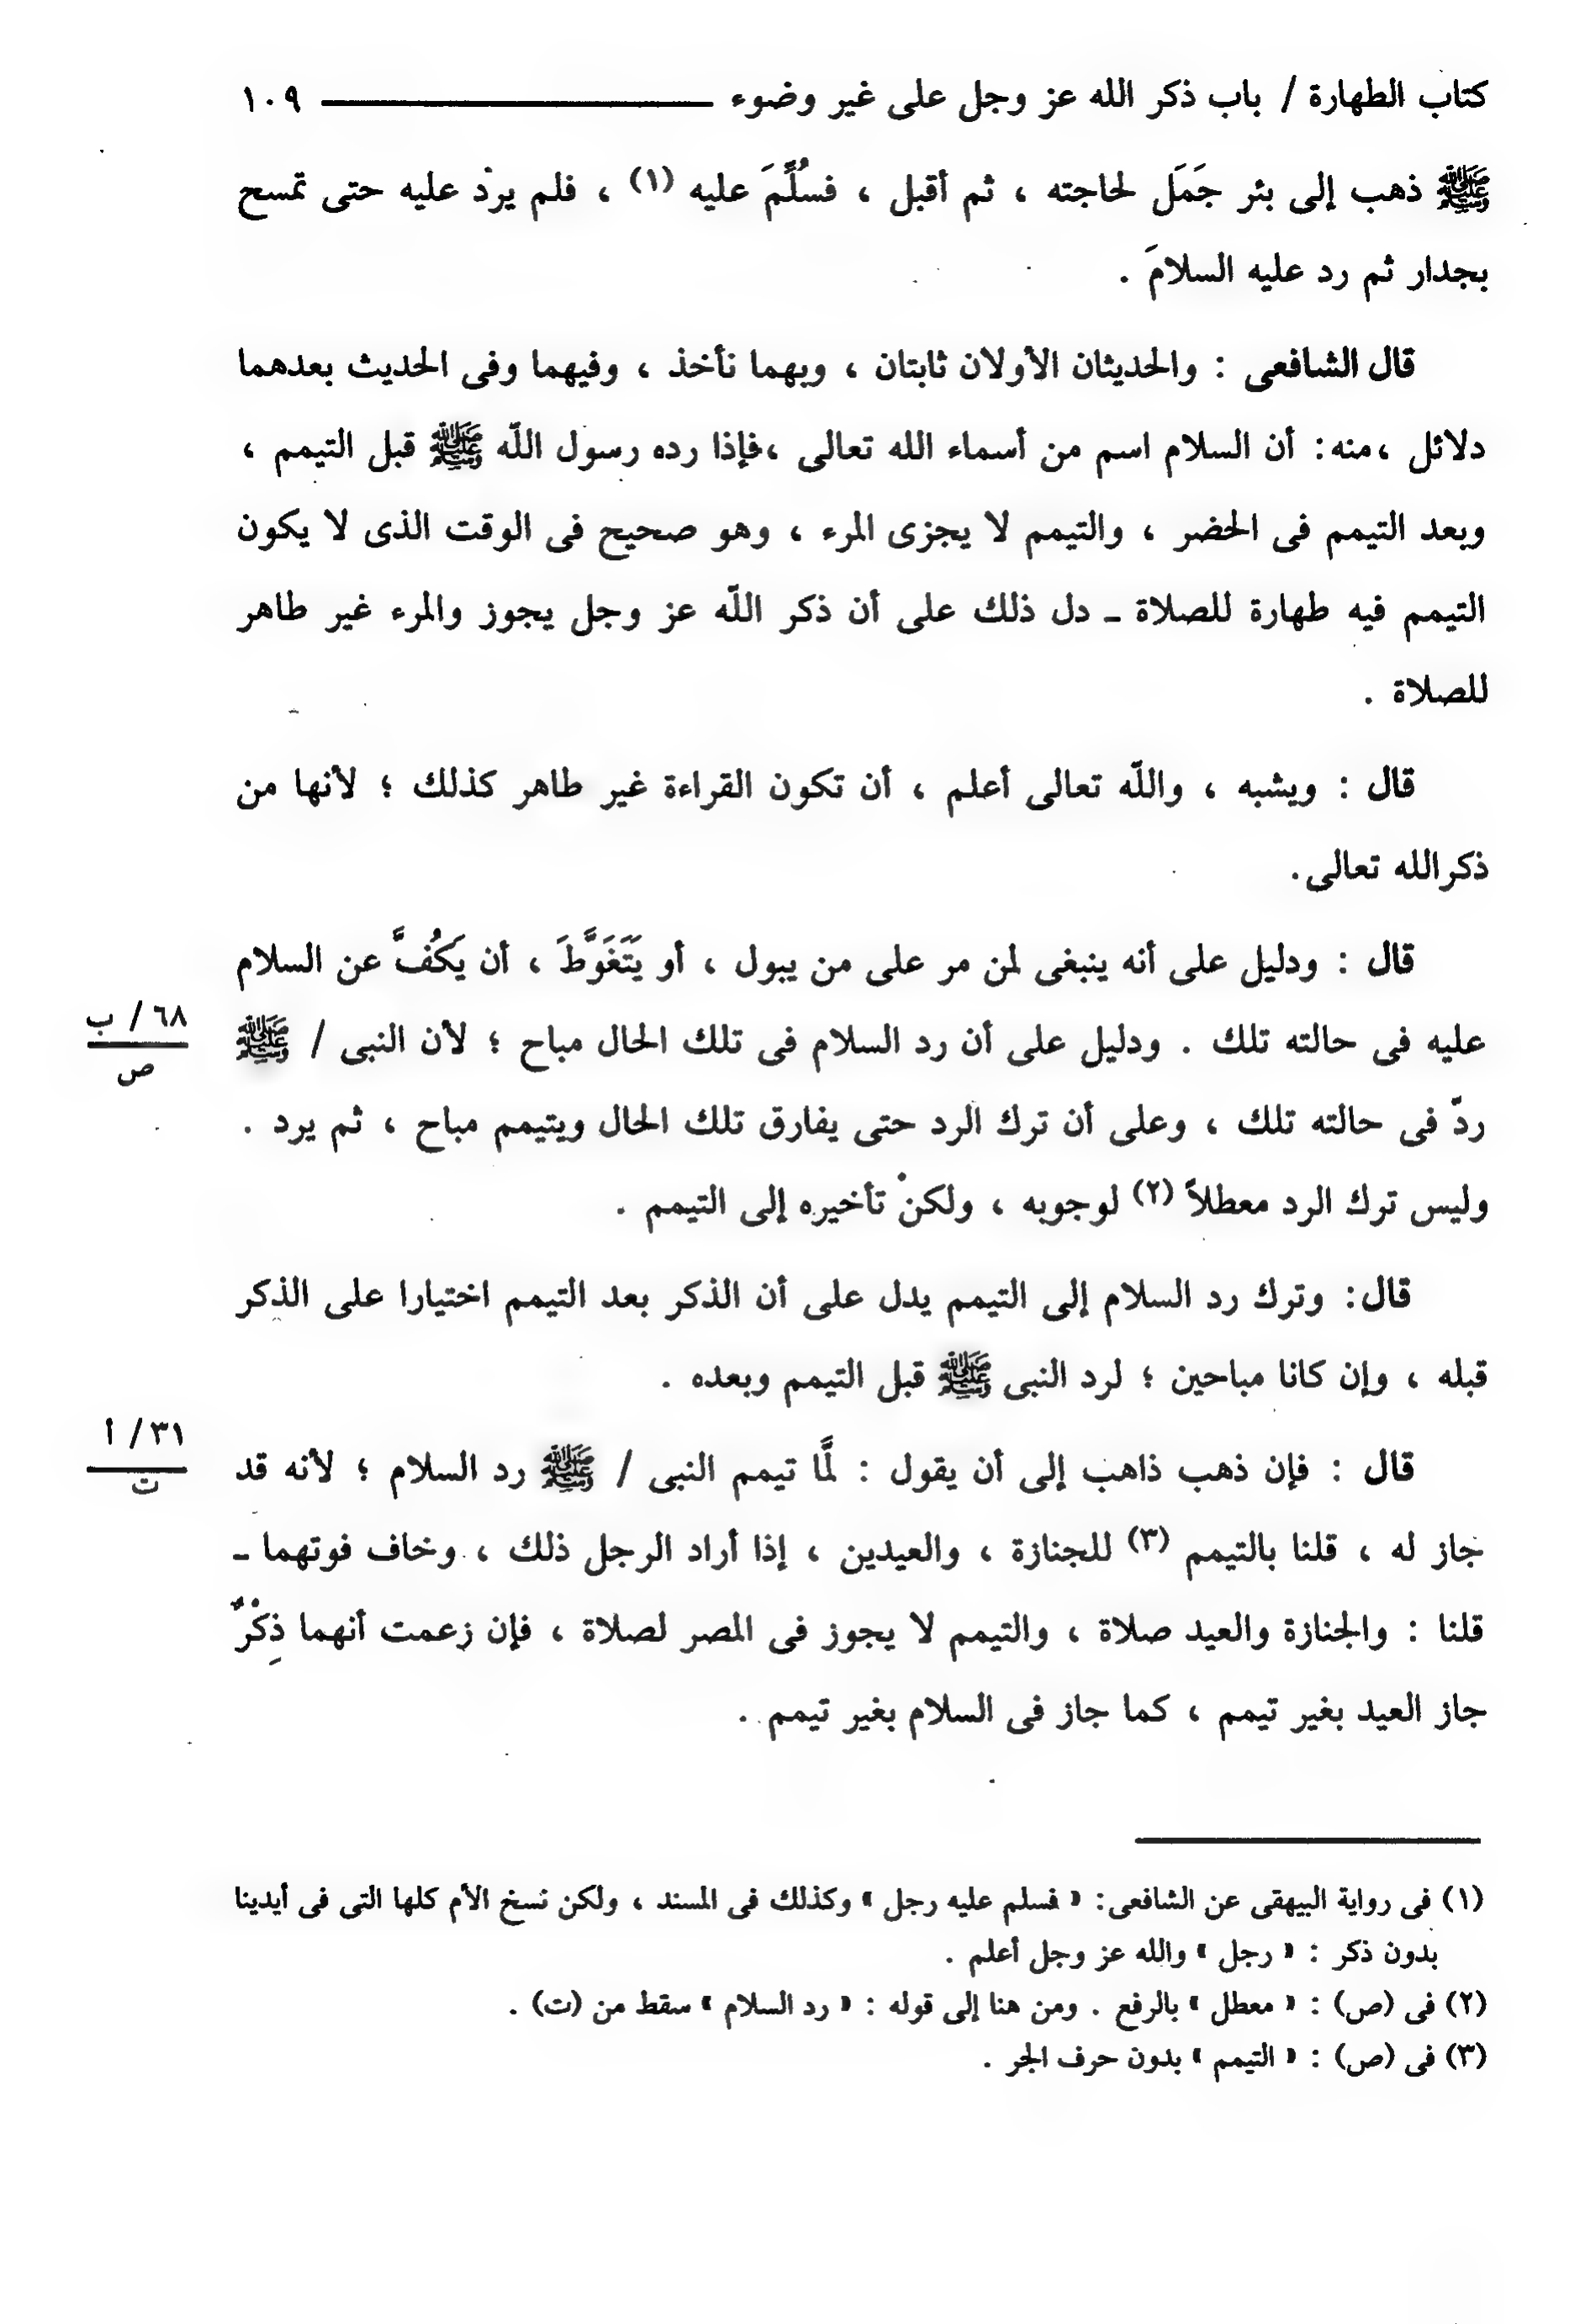 كتاب الطهارة / باب ذكر الله عز وجل على غير وضوء ـــــــــــــــ ١٠٩
ﷺ ذهب إلى بئر جَمَل لحاجته ، ثم أقبل ، فسُلِّمَ عليه (١) ، فلم يردْ عليه حتى تمسح
بجدار ثم رد عليه السلامَ .
قال الشافعى : والحديثان الأولان ثابتان ، وبهما نأخذ ، وفيهما وفى الحديث بعدهما
دلائل ،منه: أن السلام اسم من أسماء الله تعالى ،فإذا رده رسول اللّه ﷺ قبل التيمم ،
وبعد التيمم فى الحضر ، والتيمم لا يجزى المرء ، وهو صحيح فى الوقت الذى لا يكون
التيمم فيه طهارة للصلاة ـ دل ذلك على أن ذكر اللّه عز وجل يجوز والمرء غير طاهر
للصلاة .
قال : ويشبه ، واللّه تعالى أعلم ، أن تكون القراءة غير طاهر كذلك ؛ لأنها من
ذكرالله تعالى.
قال : ودليل على أنه ينبغى لمن مر على من يبول ، أو يَتَغَوَّطَ ، أن يَكُفَّ عن السلام
عليه فى حالته تلك . ودليل على أن رد السلام فى تلك الحال مباح ؛ لأن النبى / ﷺ
٦٨ / ب
ص
ردّ فى حالته تلك ، وعلى أن ترك الرد حتى يفارق تلك الحال ويتيمم مباح ، ثم يرد .
وليس ترك الرد معطلاً (٢) لوجوبه ، ولكنْ تأخيره إلى التيمم .
قال: وترك رد السلام إلى التيمم يدل على أن الذكر بعد التيمم اختيارا على الذكر
قبله ، وإن كانا مباحين ؛ لرد النبى ﷺ قبل التيمم وبعده .
قال : فإن ذهب ذاهب إلى أن يقول : لَمَّا تيمم النبى / ﷺ رد السلام ؛ لأنه قد
٣١ / أ
ت
جاز له ، قلنا بالتيمم (٣) للجنازة ، والعيدين ، إذا أراد الرجل ذلك ، وخاف فوتهما ـ
قلنا : والجنازة والعيد صلاة ، والتيمم لا يجوز فى المصر لصلاة ، فإن زعمت أنهما ذِكْرٌ
جاز العيد بغير تيمم ، كما جاز فى السلام بغير تيمم .
(١) فى رواية البيهقى عن الشافعى: « فسلم عليه رجل » وكذلك فى المسند ، ولكن نسخ الأم كلها التى فى أيدينا
بدون ذكر : « رجل » والله عز وجل أعلم .
(٢) فى (ص) : « معطل » بالرفع . ومن هنا إلى قوله : « رد السلام » سقط من (ت) .
(٣) فى (ص) : « التيمم » بدون حرف الجر .